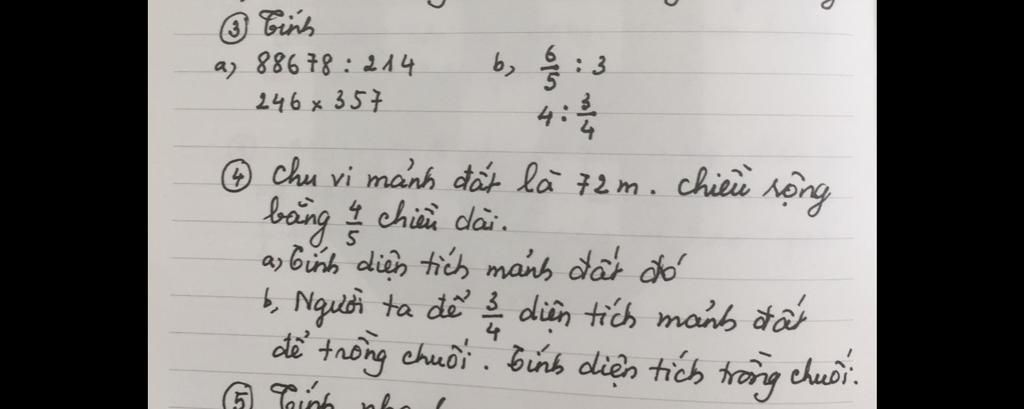 ③ Tính
a, 88678 : 214 b, 6/5 : 3
246 × 357 4 : 3/4
④ Chu vi mảnh đất là 72 m. Chiều rộng
bằng 4/5 chiều dài.
a, Tính diện tích mảnh đất đó
b, Người ta để 3/4 diện tích mảnh đất
để trồng chuối. Tính diện tích trồng chuối.
⑤ Tính